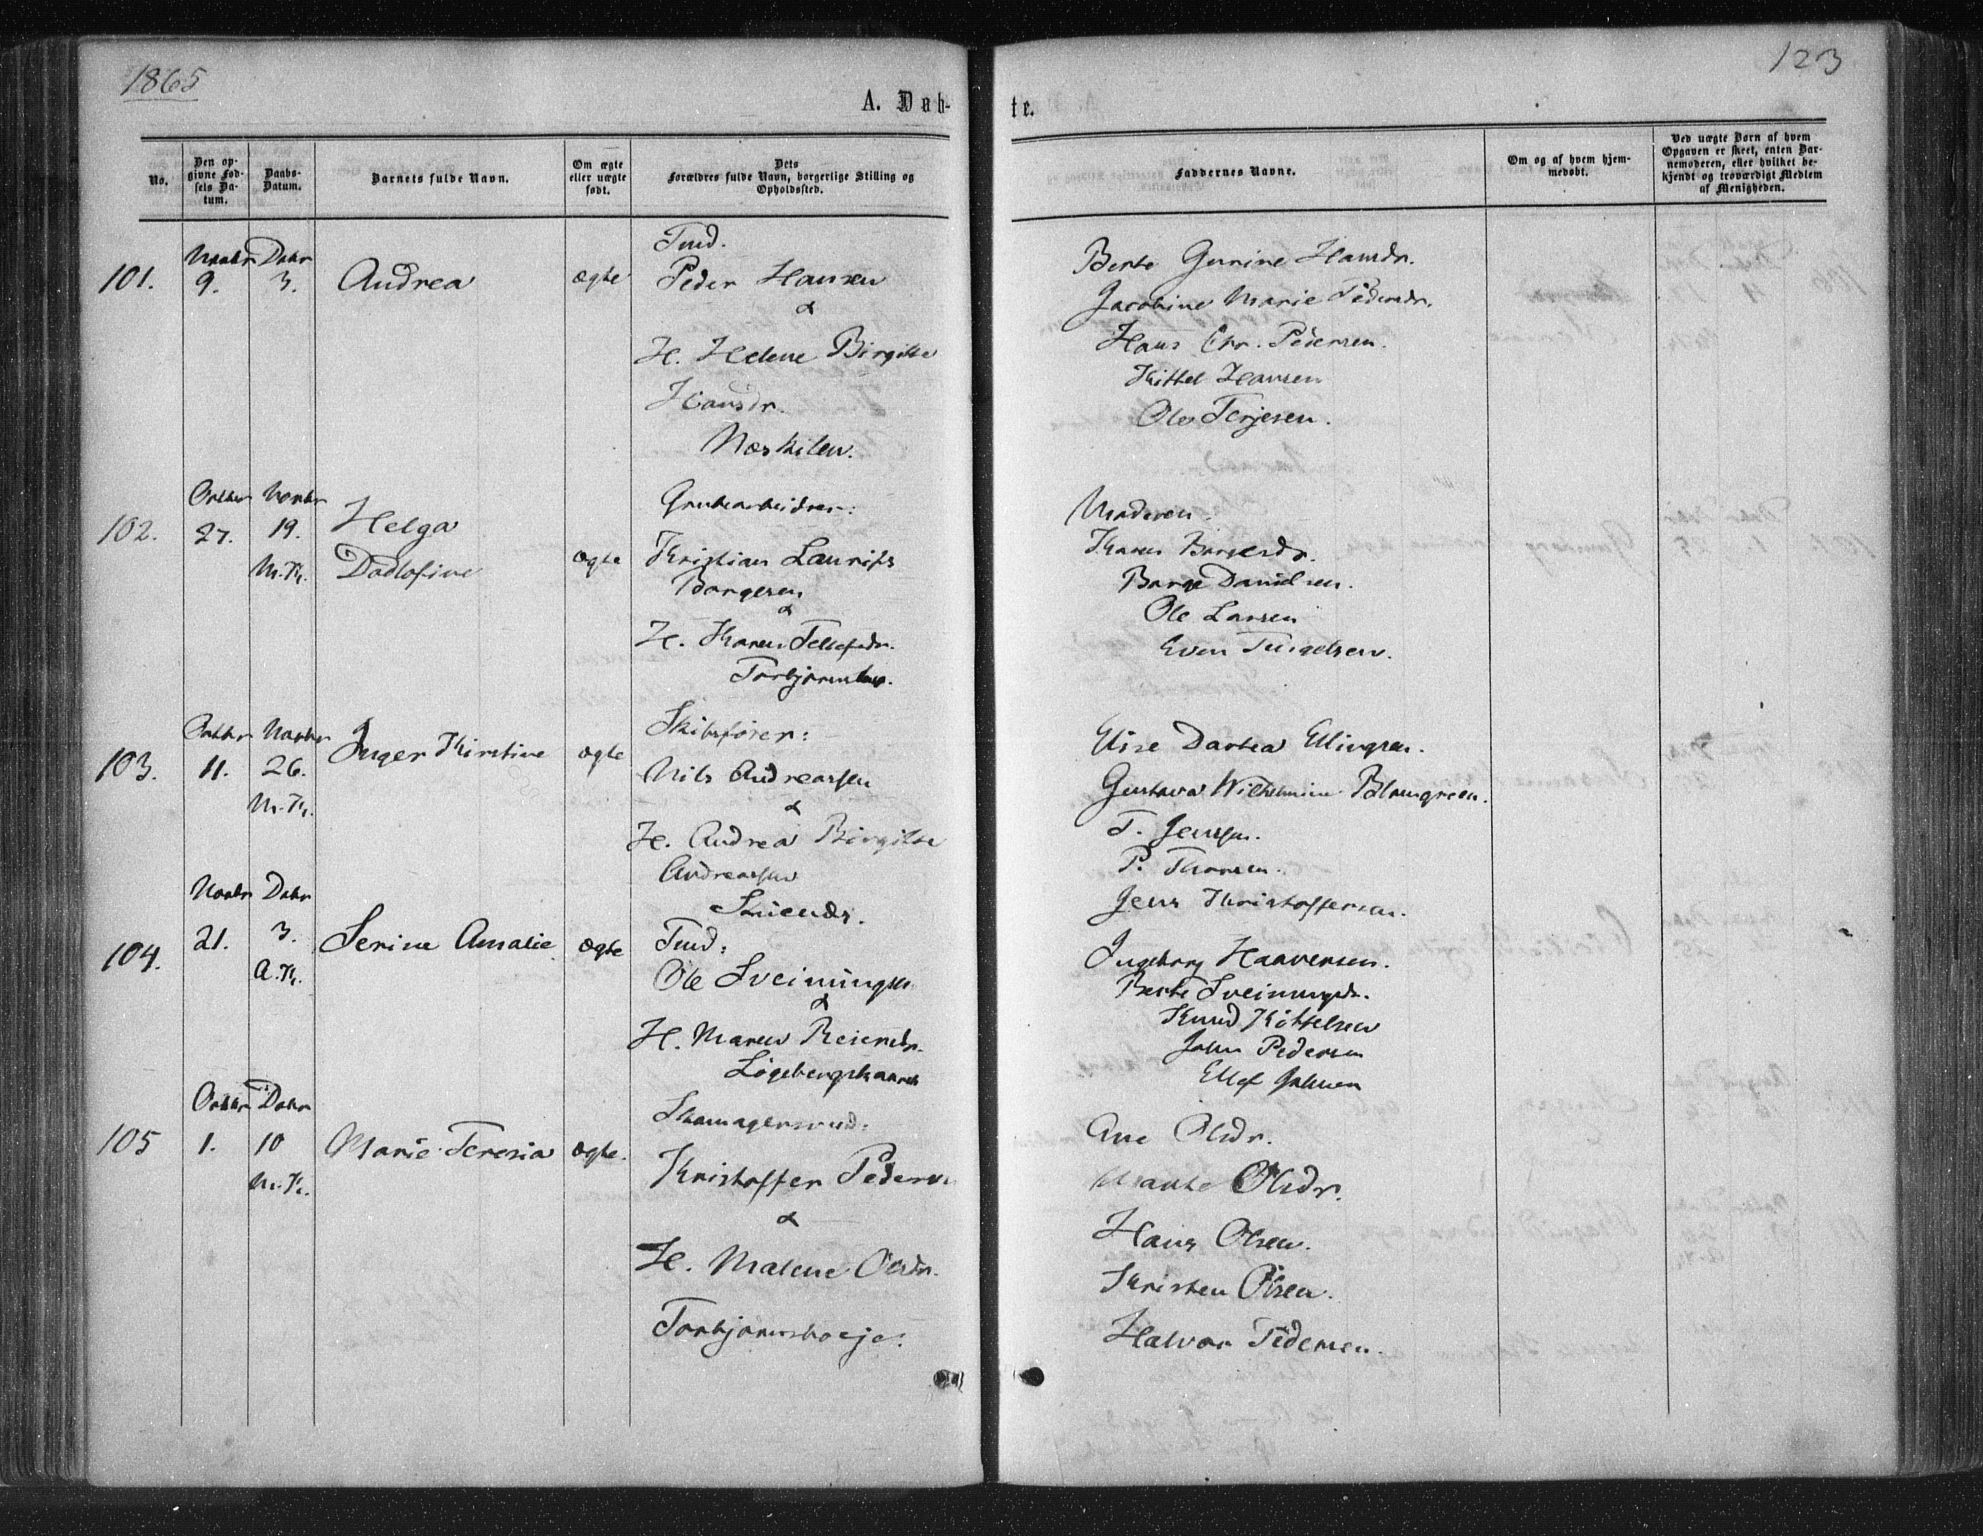 1865
123
A. Døb-
te.
No.
Den op-
givne Fød-
sels Da-
tum.
Daabs-
Datum.
Barnets fulde Navn.
Om ægte
eller uægte
født.
Dets
Forældres fulde Navn, borgerlige Stilling og
Opholdssted.
Faddernes Navne.
Om og af hvem hjem-
medøbt.
Ved uægte Børn af hvem
Opgaven er skeet, enten Bar-
nemoderen, eller hvilket be-
kjendt og troværdigt Medlem
af Menigheden.
101.
Novbr Debr
9. 3.
Andrea
ægte
Ind.
Peder Hansen
&
H. Helene Birgitte
Hansdr.
Næskilen.
Berte Gurine Hansdr.
Jacobine Marie Pedersdr.
Hans Chr. Pedersen.
Kittel Hansen
Ole Terjesen.
102.
Octbr Novbr
27. 19.
M.K.
Helga
ægte
Grubearbeider:
Kristian Laurits
Borgesen
&
H. Karen Tellefsdr.
Moderen.
Karen Borgesdr.
Borge Danielsen.
Ole Larsen
Even
103.
Octbr Novbr
11. 26.
M.K.
Inger Kirstine
ægte
Skibsfører:
Nils Andreassen
&
H. Andrea Birgitte
Andreassen
Elise Dortea Ellingsen.
Gustava Wilhelmine Blomgreen.
T. Jensen.
P. Thorsen.
Jens Kristoffersen.
104.
Novbr Debr
21. 3.
A.K.
Serine Amalie
ægte
Ind:
Ole Sveinungsen
&
H. Maren Reiersdr.
Ingeborg Haaversen.
Berte Sveinungsdr.
Knud Kittelsen
John Pedersen
Ellef Johnsen
105
Octbr Debr
1. 10
M.K.
Marie Teresia
ægte.
Skomagersvend:
Kristoffer Pedersen
&
H. Malene Olsdr.
Ane Olsdr.
Olsdr.
Hans Olsen.
Kristen Olsen.
Halvor Pedersen.